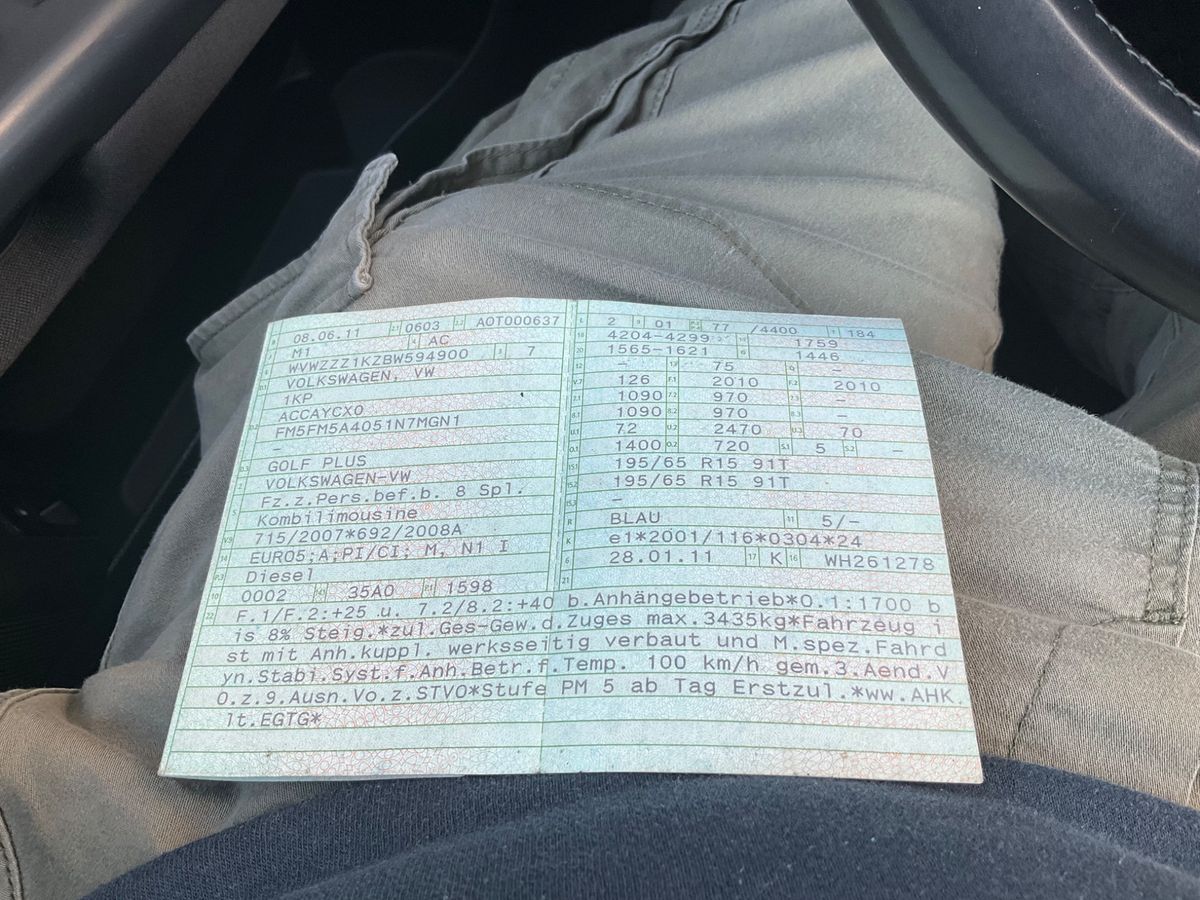 08.06.11 2.1 0603 2.2 AOT000637
M1 AC
WVWZZZ1KZBW594900 3 7
VOLKSWAGEN, VW
1KP
ACCAYCX0
FM5FM5A4051N7MGN1
–
GOLF PLUS
VOLKSWAGEN-VW
Fz.z.Pers.bef.b. 8 Spl.
Kombilimousine
715/2007*692/2008A
EURO5;A;PI/CI; M, N1 I
Diesel
0002 35A0 P.1 1598
L 2 9 01 77 /4400 T 184
4204-4299 1759
1565-1621 1446
– 75 –
126 F.1 2010 F.2 2010
1090 7.2 970 –
1090 8.2 970 8.3 –
U.1 72 U.2 2470 U.3 70
O.1 1400 O.2 720 S.1 5 S.2 –
15.1 195/65 R15 91T
15.2 195/65 R15 91T
–
R BLAU 11 5/–
K e1*2001/116*0304*24
6 28.01.11 17 K 16 WH261278
21
22 F.1/F.2:+25 u. 7.2/8.2:+40 b.Anhängebetrieb*O.1:1700 b
is 8% Steig.*zul.Ges-Gew.d.Zuges max.3435kg*Fahrzeug i
st mit Anh.kuppl. werksseitig verbaut und M.spez.Fahrd
yn.Stabi.Syst.f.Anh.Betr.f.Temp. 100 km/h gem.3.Aend.V
O.z.9.Ausn.Vo.z.STVO*Stufe PM 5 ab Tag Erstzul.*ww.AHK
lt.EGTG*